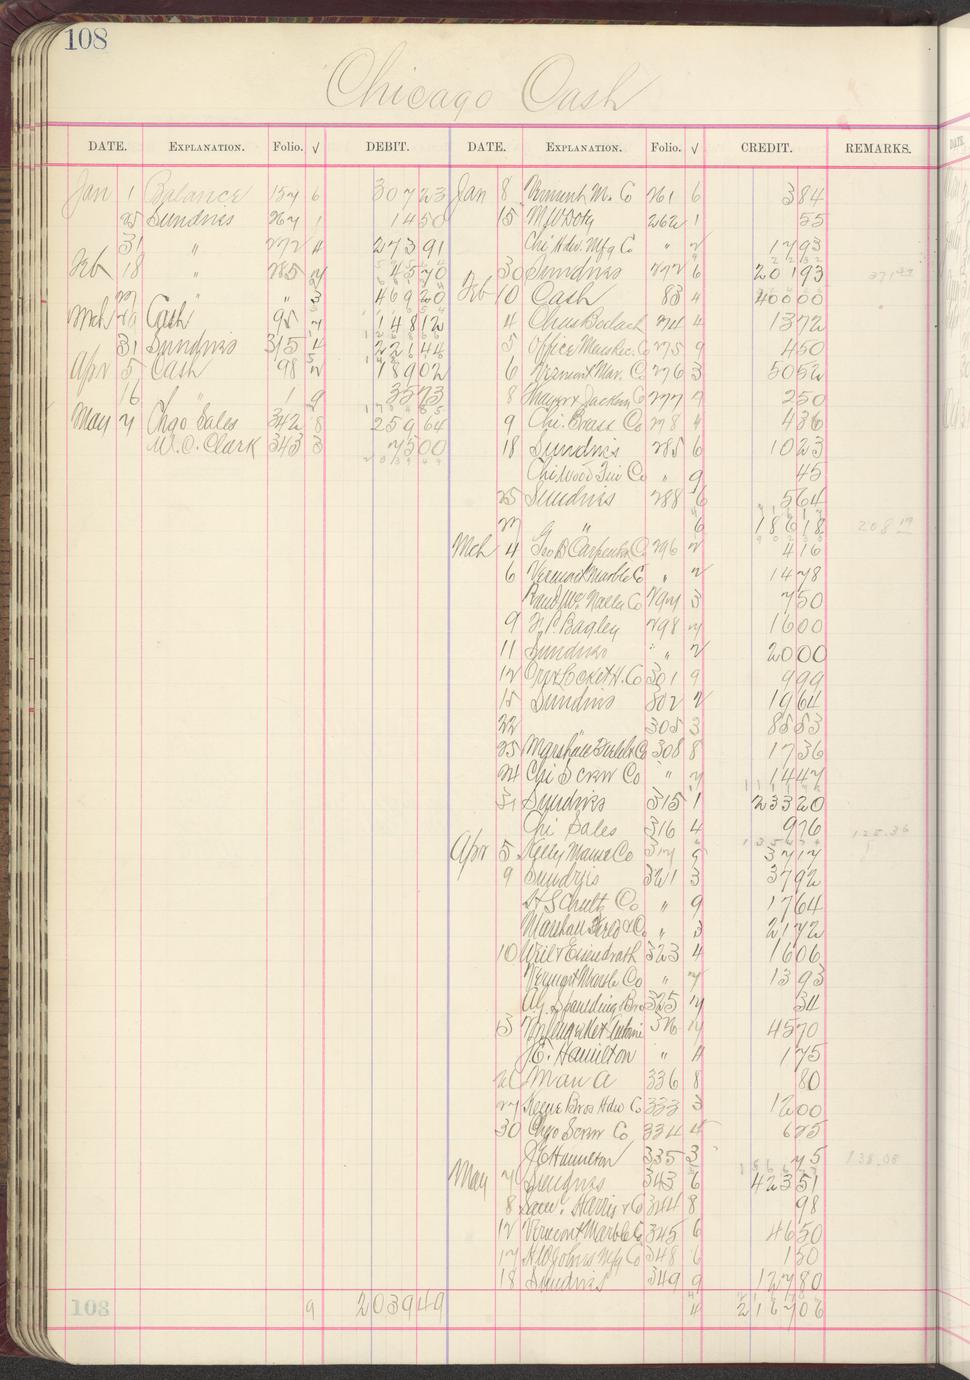 108
Chicago Cash
DATE. EXPLANATION. Folio. √ DEBIT. DATE. EXPLANATION. Folio. √ CREDIT. REMARKS.
Jan 1 Balance 157 6 307 23 Jan 8 Vermont M. Co 261 6 3 84
25 Sundries 267 1 14 50 15 M. W. Doty 262 1 55
31 " 272 4 273 91 Chi Hdw. Mfg Co " 2 17 93
Feb 18 " 285 7 45 70 30 Sundries 272 6 201 93
27 " " 3 469 20 Feb 10 Cash 83 4 400 00
Mch Cash 95 7 148 12 4 Chas 274 4 13 72
31 Sundries 315 4 221 44 5 Office Co 275 9 4 50
Apr 5 Cash 98 2 189 02 6 Vermont Mar. Co 276 3 50 52
16 " 1 9 35 73 8 Co 277 9 2 50
May 7 Chgo Sales 342 8 259 64 9 Chi. Brass Co 278 4 4 36
W. O. Clark 343 3 75 00 18 Sundries 285 6 10 23
Chi Wood Co " 9 45
25 Sundries 288 6 5 64
27 " 6 186 18 208 19
Mch 4 Geo B Carpenter Co 296 2 4 16
6 Vermont Marble Co " 2 14 78
Rand Mc Nally Co 297 3 7 50
9 F. P. Bagley 298 7 16 00
11 Sundries " " 2 20 00
12 Co 301 9 9 99
15 Sundries 302 2 19 64
22 305 3 85 53
25 Marshall Field & Co 308 8 17 36
24 Chi Screw Co " 7 14 47
31 Sundries 315 1 233 20
Chi Sales 316 4 9 76 125.36
Apr 5 Kelly Maus Co 317 9 37 17
9 Sundries 321 3 37 92
H Schultz Co " 9 17 64
Marshall Field & Co " 3 21 72
10 Weil & Eisendrath 323 4 16 06
Vermont Marble Co " 7 13 93
AG. Spaulding & Bro 325 7 34
13 326 7 45 70
J. E. Hamilton " 4 1 75
336 8 80
27 Keene Bros Hdw Co 333 3 12 00
30 Chgo Screw Co 334 4 6 25
J E Hamilton 335 3 75 138.08
May 7 Sundries 343 6 423 51
8 Harris & Co 344 8 98
12 Vermont Marble Co 345 6 46 50
17 Mfg Co 348 6 1 50
18 Sundries 349 9 127 80
108 9 2039 49 4 2167 06